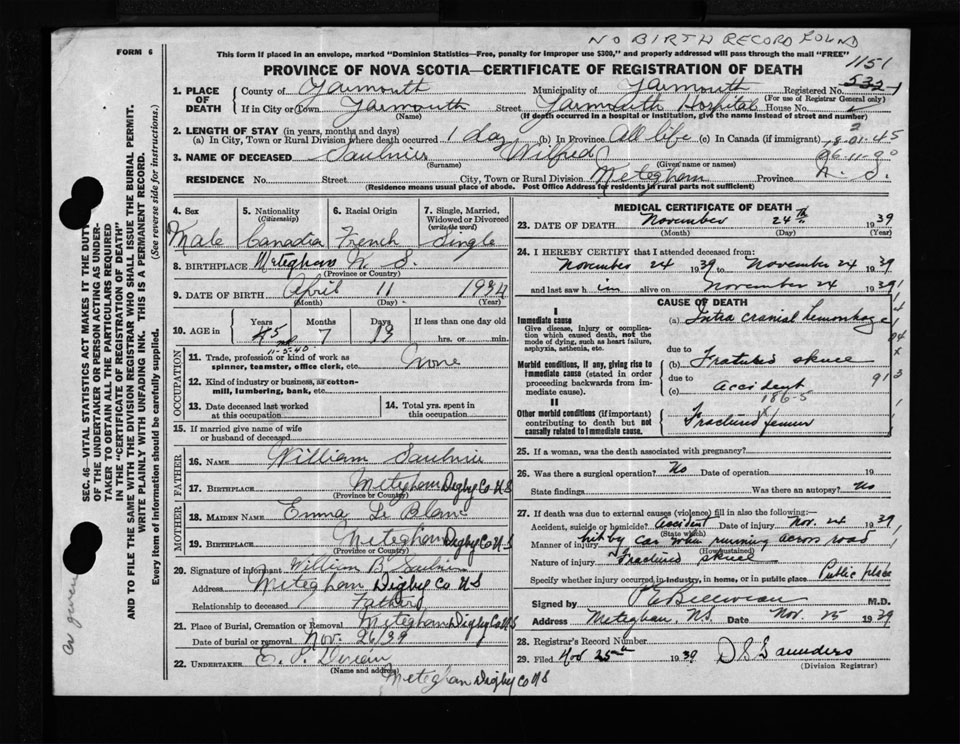 NO BIRTH RECORD FOUND
FORM 6
This form if placed in an envelope, marked "Dominion Statistics—Free, penalty for improper use $300," and properly addressed will pass through the mail "FREE"
PROVINCE OF NOVA SCOTIA—CERTIFICATE OF REGISTRATION OF DEATH
1151
1. PLACE OF DEATH
County of Yarmouth Municipality of Yarmouth Registered No. 532
(For use of Registrar General only)
If in City or Town Yarmouth Street Yarmouth Hospital House No.
(Name) (If death occurred in a hospital or institution, give the name instead of street and number)
2. LENGTH OF STAY (in years, months and days)
(a) In City, Town or Rural Division where death occurred 1 day (b) In Province All life (c) In Canada (if immigrant)
18-01-45
3. NAME OF DECEASED Saulnier Wilfred
(Surname) (Given name or names)
06-11-90
RESIDENCE No. Street City, Town or Rural Division Meteghan Province N. S.
(Residence means usual place of abode. Post Office Address for residents in rural parts not sufficient)
4. Sex
Male
5. Nationality (Citizenship)
Canadian
6. Racial Origin
French
7. Single, Married, Widowed or Divorced (write the word)
Single
8. BIRTHPLACE Meteghan N. S.
(Province or Country)
9. DATE OF BIRTH April 11 1934
(Month) (Day) (Year)
10. AGE in Years Months Days If less than one day old
45 7 13 hrs. or min.
OCCUPATION
11. Trade, profession or kind of work as spinner, teamster, office clerk, etc. None
12. Kind of industry or business, as cotton-mill, lumbering, bank, etc.
13. Date deceased last worked at this occupation
14. Total yrs. spent in this occupation
15. If married give name of wife or husband of deceased
FATHER
16. NAME William Saulnier
17. BIRTHPLACE Meteghan Digby Co NS
(Province or Country)
MOTHER
18. MAIDEN NAME Emma Le Blanc
19. BIRTHPLACE Meteghan Digby Co NS
(Province or Country)
20. Signature of informant William B. Saulnier
Address Meteghan Digby Co NS
Relationship to deceased Father
21. Place of Burial, Cremation or Removal Meteghan Digby Co NS
Date of burial or removal Nov. 26/39
22. UNDERTAKER
(Name and address)
Meteghan Digby Co NS
MEDICAL CERTIFICATE OF DEATH
23. DATE OF DEATH November 24th 1939
(Month) (Day) (Year)
24. I HEREBY CERTIFY that I attended deceased from:
November 24 1939 to November 24 1939
and last saw him alive on November 24 1939
CAUSE OF DEATH
I
Immediate cause
Give disease, injury or complication which caused death, not the mode of dying, such as heart failure, asphyxia, asthenia, etc.
(a) Intra cranial hemorrhage
due to
Morbid conditions, if any, giving rise to immediate cause (stated in order proceeding backwards from immediate cause).
(b) Fractured skull
due to
(c) Accident
186-5
II
Other morbid conditions (if important) contributing to death but not causally related to immediate cause.
Fractured femur
25. If a woman, was the death associated with pregnancy?
26. Was there a surgical operation? No Date of operation 19
State findings Was there an autopsy? No
27. If death was due to external causes (violence) fill in also the following:—
Accident, suicide or homicide? Accident Date of injury Nov. 24 1939
(State which)
Manner of injury hit by car when running across road
(How sustained)
Nature of injury Fractured skull
Specify whether injury occurred in industry, in home, or in public place Public place
Signed by M.D.
Address Meteghan, N.S. Date Nov. 25 1939
28. Registrar's Record Number
29. Filed Nov 25th 1939 D S Saunders
(Division Registrar)
SEC. 46—VITAL STATISTICS ACT MAKES IT THE DUTY OF THE UNDERTAKER OR PERSON ACTING AS UNDERTAKER TO OBTAIN ALL THE PARTICULARS REQUIRED IN THE "CERTIFICATE OF REGISTRATION OF DEATH" AND TO FILE THE SAME WITH THE DIVISION REGISTRAR WHO SHALL ISSUE THE BURIAL PERMIT.
WRITE PLAINLY WITH UNFADING INK. THIS IS A PERMANENT RECORD.
Every item of information should be carefully supplied. (See reverse side for instructions.)
as given